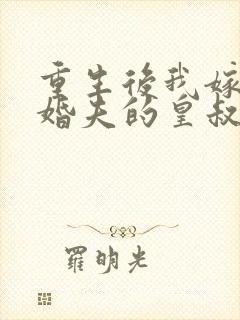 重生後我嫁
婚夫的皇叔
羅明光